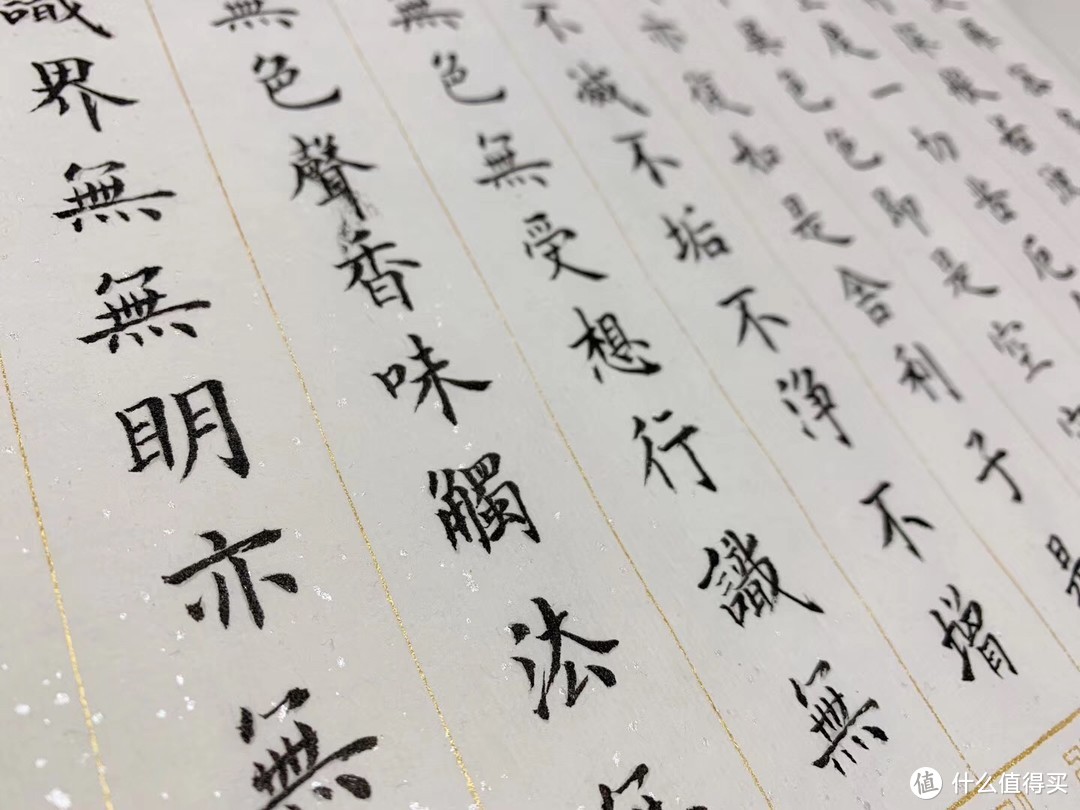 度一切苦厄
異色色即是空
亦復如是舍利子是
不減不垢不淨不增
無色無受想行識無
無色聲香味觸法無
識界無無明亦無
值 什么值得买